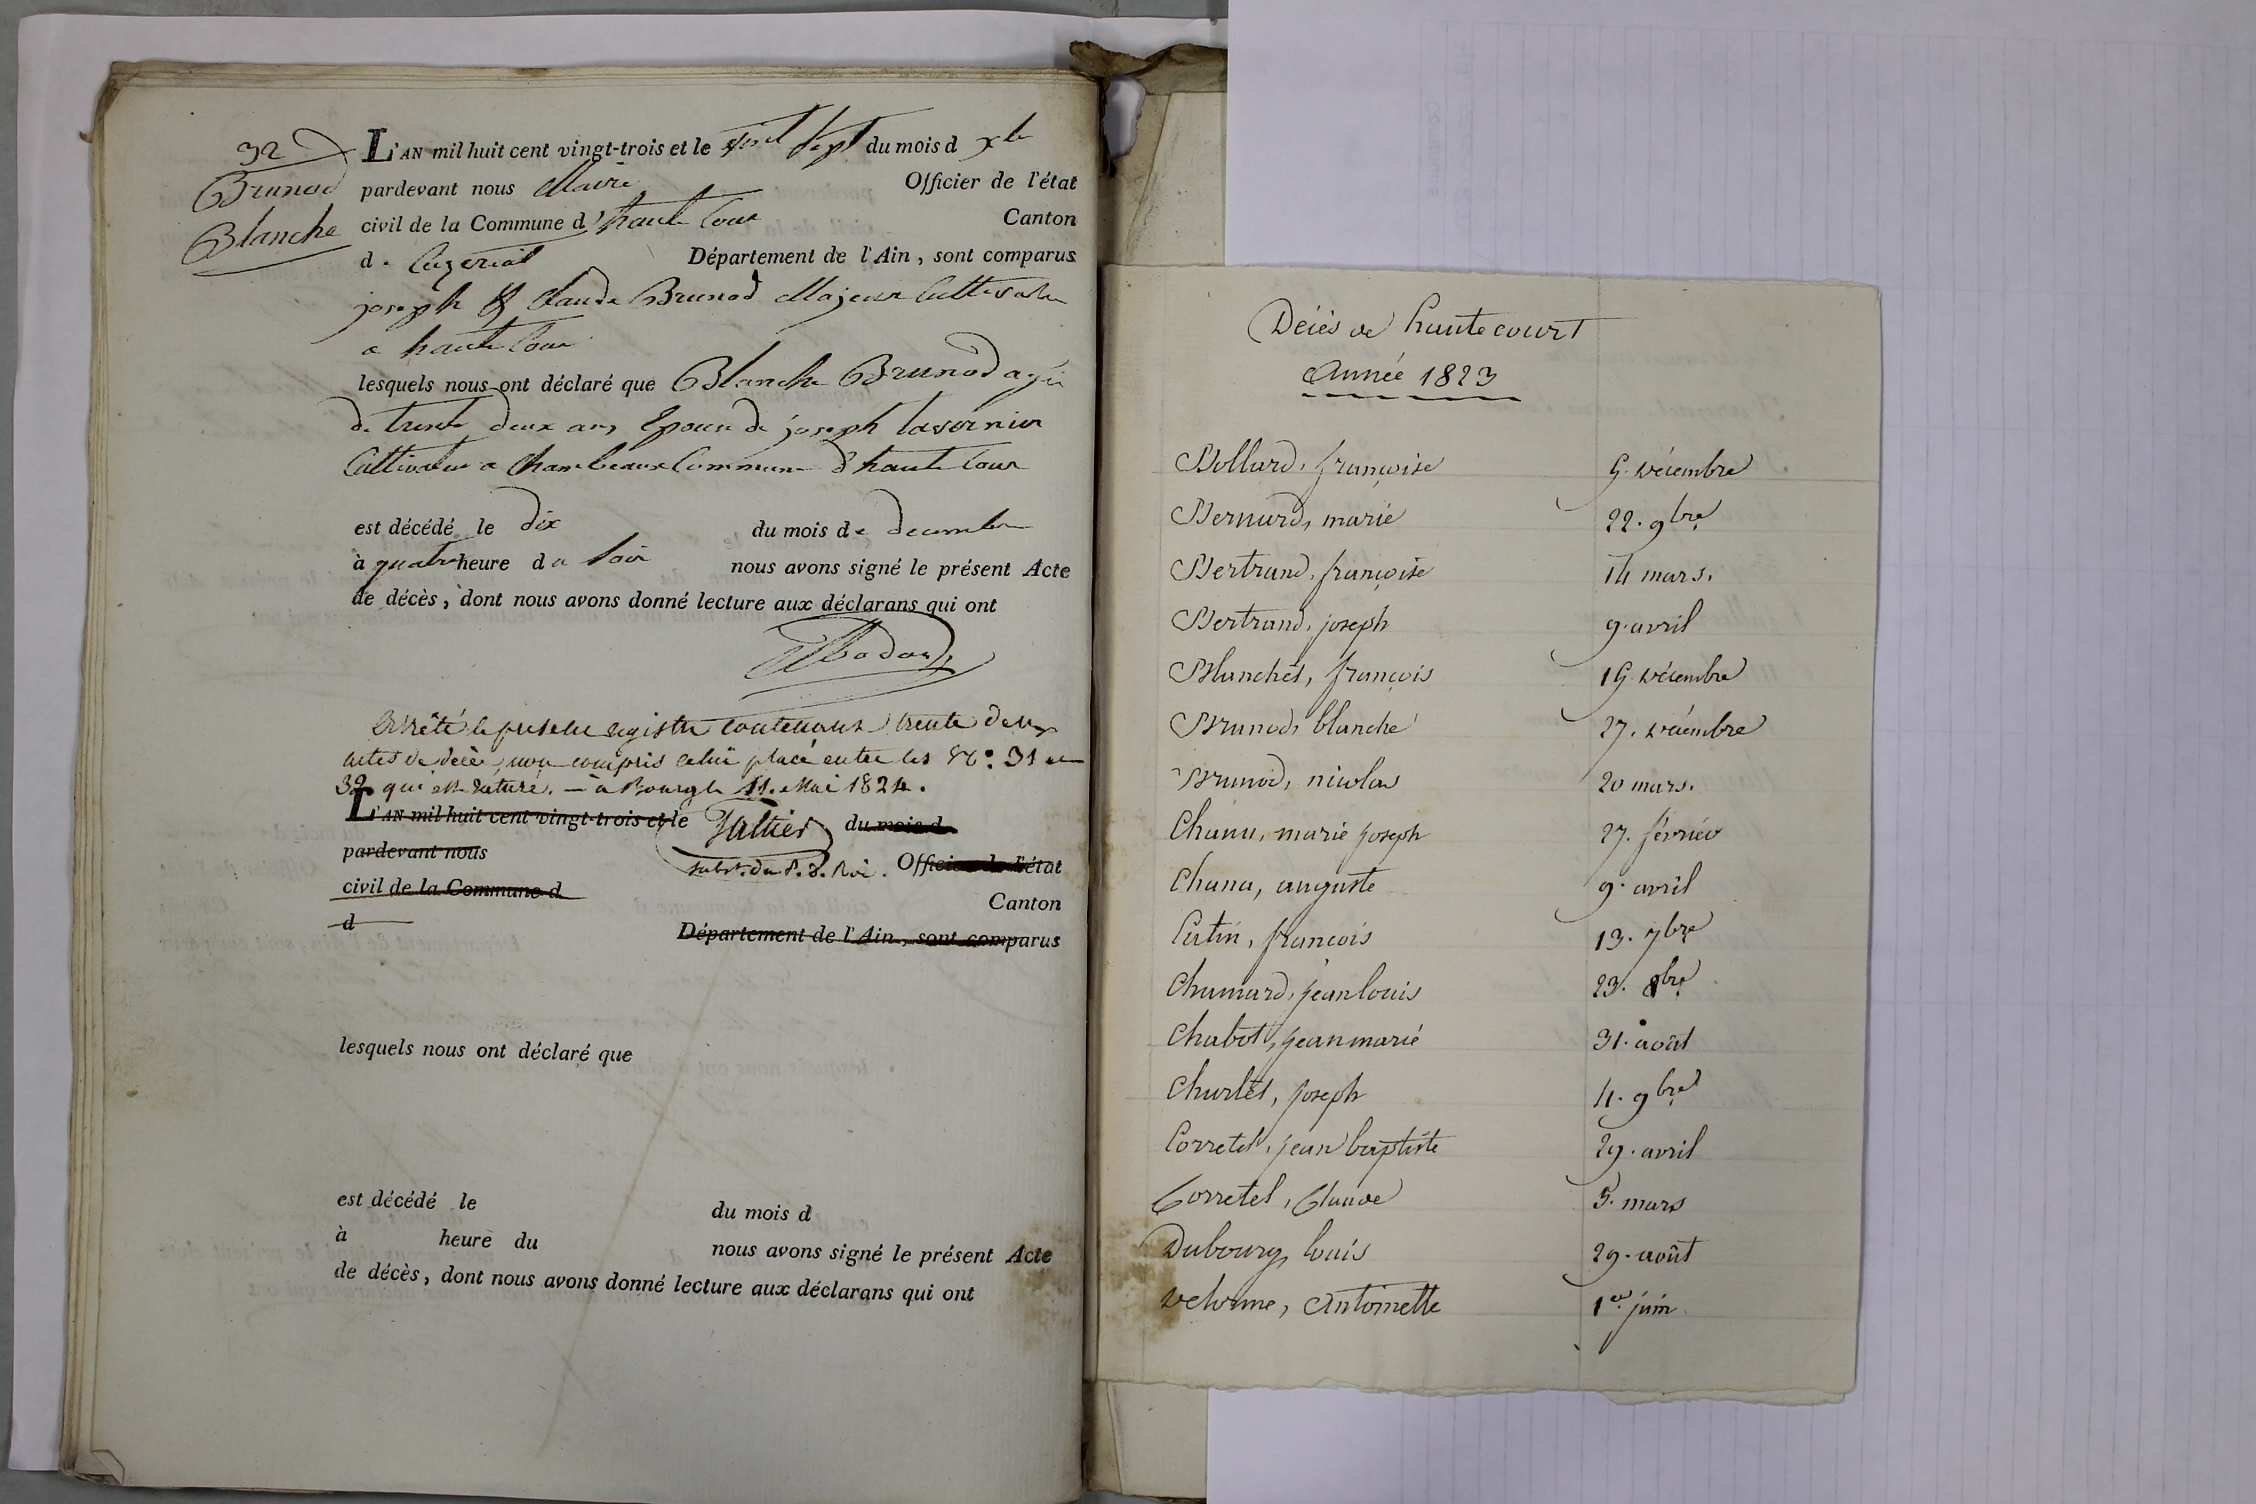 32
Brunod
Blanche
L'AN mil huit cent vingt-trois et le vint sept du mois d xbre
pardevant nous Maire Officier de l'état
civil de la Commune d'haute Cour Canton
d. Ceyzeriat Département de l'Ain, sont comparus
joseph & Claude Brunod Majeur Cultivateur
a haute Cour
lesquels nous ont déclaré que Blanche Brunod agée
de trente deux ans Epouse de joseph tavernier
Cultivateur a Chambeaux Commune d'haute Cour
est décédé le dix du mois de decembre
à quatre heure du soir nous avons signé le présent Acte
de décès, dont nous avons donné lecture aux déclarans qui ont
Arrêté le présent registre contenant trente deux
actes de décès, non compris celui placé entre les Nos. 31 et
32 qui est raturé. — à Bourg le 11. Mai 1824.
L'AN mil huit cent vingt-trois et le du mois d
pardevant nous
subst. du P. d. Roi. Officier de l'état
civil de la Commune d
Canton
d
Département de l'Ain, sont comparus
lesquels nous ont déclaré que
est décédé le du mois d
à heure du nous avons signé le présent Acte
de décès, dont nous avons donné lecture aux déclarans qui ont
Décès de hautecourt
Année 1823
Bollard, françoise 5. décembre
Bernard, marie 22. 9bre
Bertrand, françoise 14 mars.
Bertrand, joseph 9. avril
Blanchet, françois 15. décembre
Brunod, blanche 27. décembre
Brunod, nicolas 20 mars.
Chanu, marie joseph 27. février
Chana, auguste 9. avril
Catin, françois 13. 7bre
Chamard, jean louis 23. 8bre
Chabot, jean marie 31. août
Charlet, joseph 4. 9bre
Corretel, jean baptiste 29. avril
Corretel, Claude 5. mars
Dubourg, louis 29. août
delorme, Antoinette 1er juin